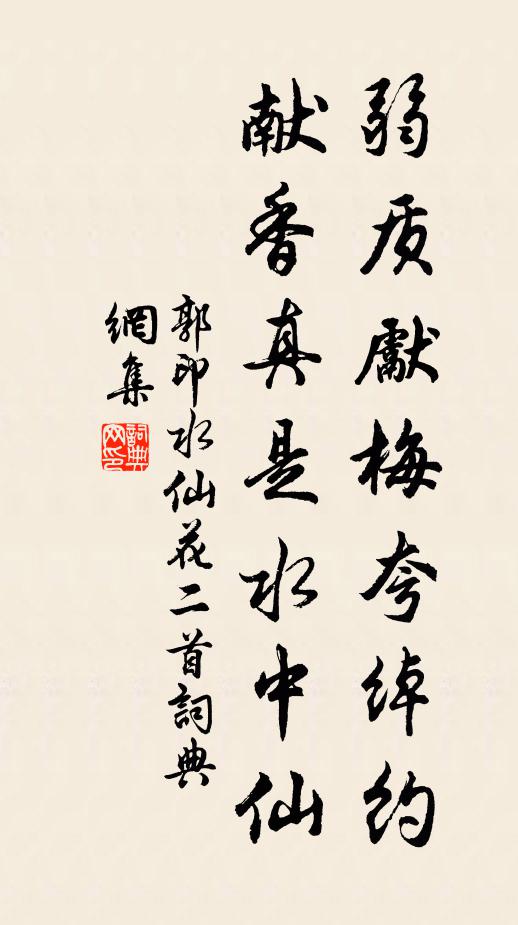 弱质獻梅夸绰约
献香真是水中仙
郭印水仙花二首詞典
網集
詞典
网印